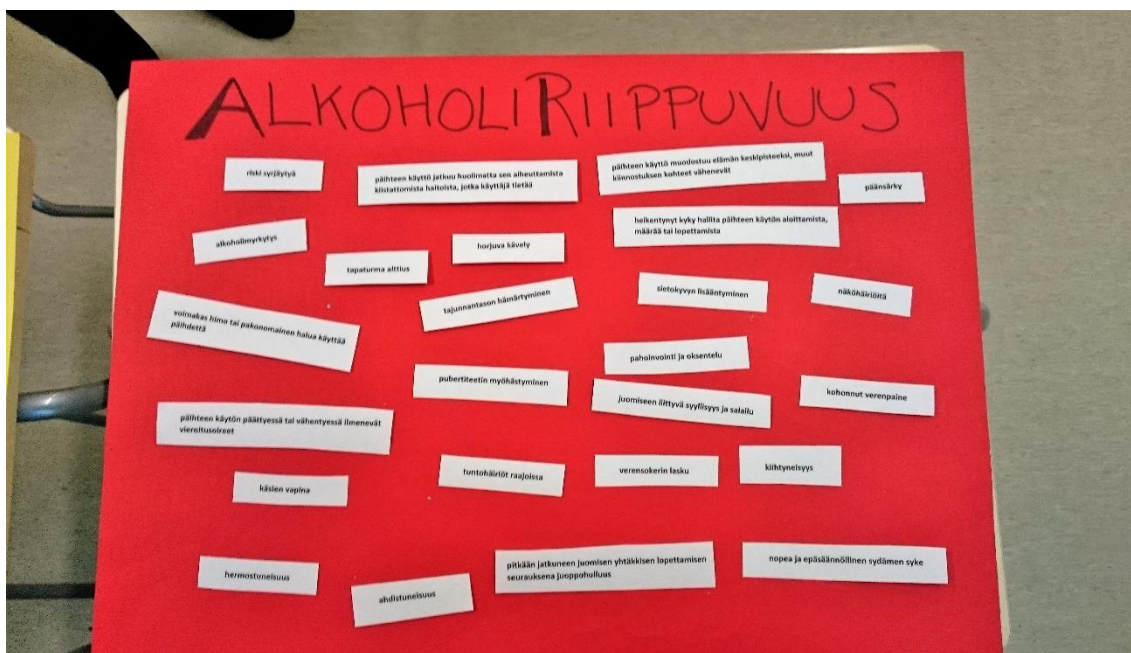 ALKOHOLIRIIPPUVUUS
riski syrjäytyä
päihteen käyttö jatkuu huolimatta sen aiheuttamista
kiistattomista haitoista, jotka käyttäjä tietää
päihteen käyttö muodostuu elämän keskipisteeksi, muut
kiinnostuksen kohteet vähenevät
päänsärky
alkoholimyrkytys
horjuva kävely
heikentynyt kyky hallita päihteen käytön aloittamista,
määrää tai lopettamista
tapaturma alttius
tajunnantason hämärtyminen
sietokyvyn lisääntyminen
näköhäiriöitä
voimakas himo tai pakonomainen halua käyttää
päihdettä
pahoinvointi ja oksentelu
pubertiteetin myöhästyminen
juomiseen liittyvä syyllisyys ja salailu
kohonnut verenpaine
päihteen käytön päättyessä tai vähentyessä ilmenevät
vieroitusoireet
käsien vapina
tuntohäiriöt raajoissa
verensokerin lasku
kiihtyneisyys
hermostuneisuus
ahdistuneisuus
pitkään jatkuneen juomisen yhtäkkisen lopettamisen
seurauksena juoppohulluus
nopea ja epäsäännöllinen sydämen syke